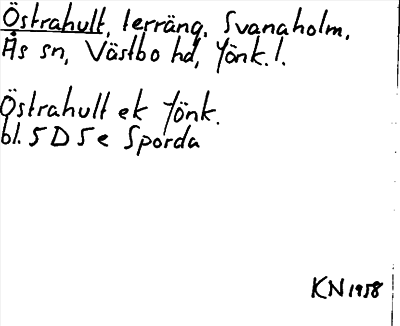 Östrahult, terräng. Svanaholm,
Ås sn, Västbo hd, Jönk. l.
Östrahult ek Jönk.
bl. 5 D 5 e Sporda
KN 1958